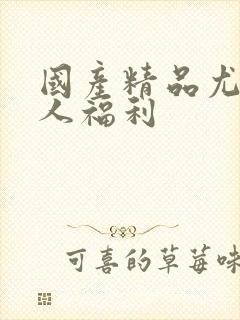 國產精品尤
人福利
可喜的草莓味